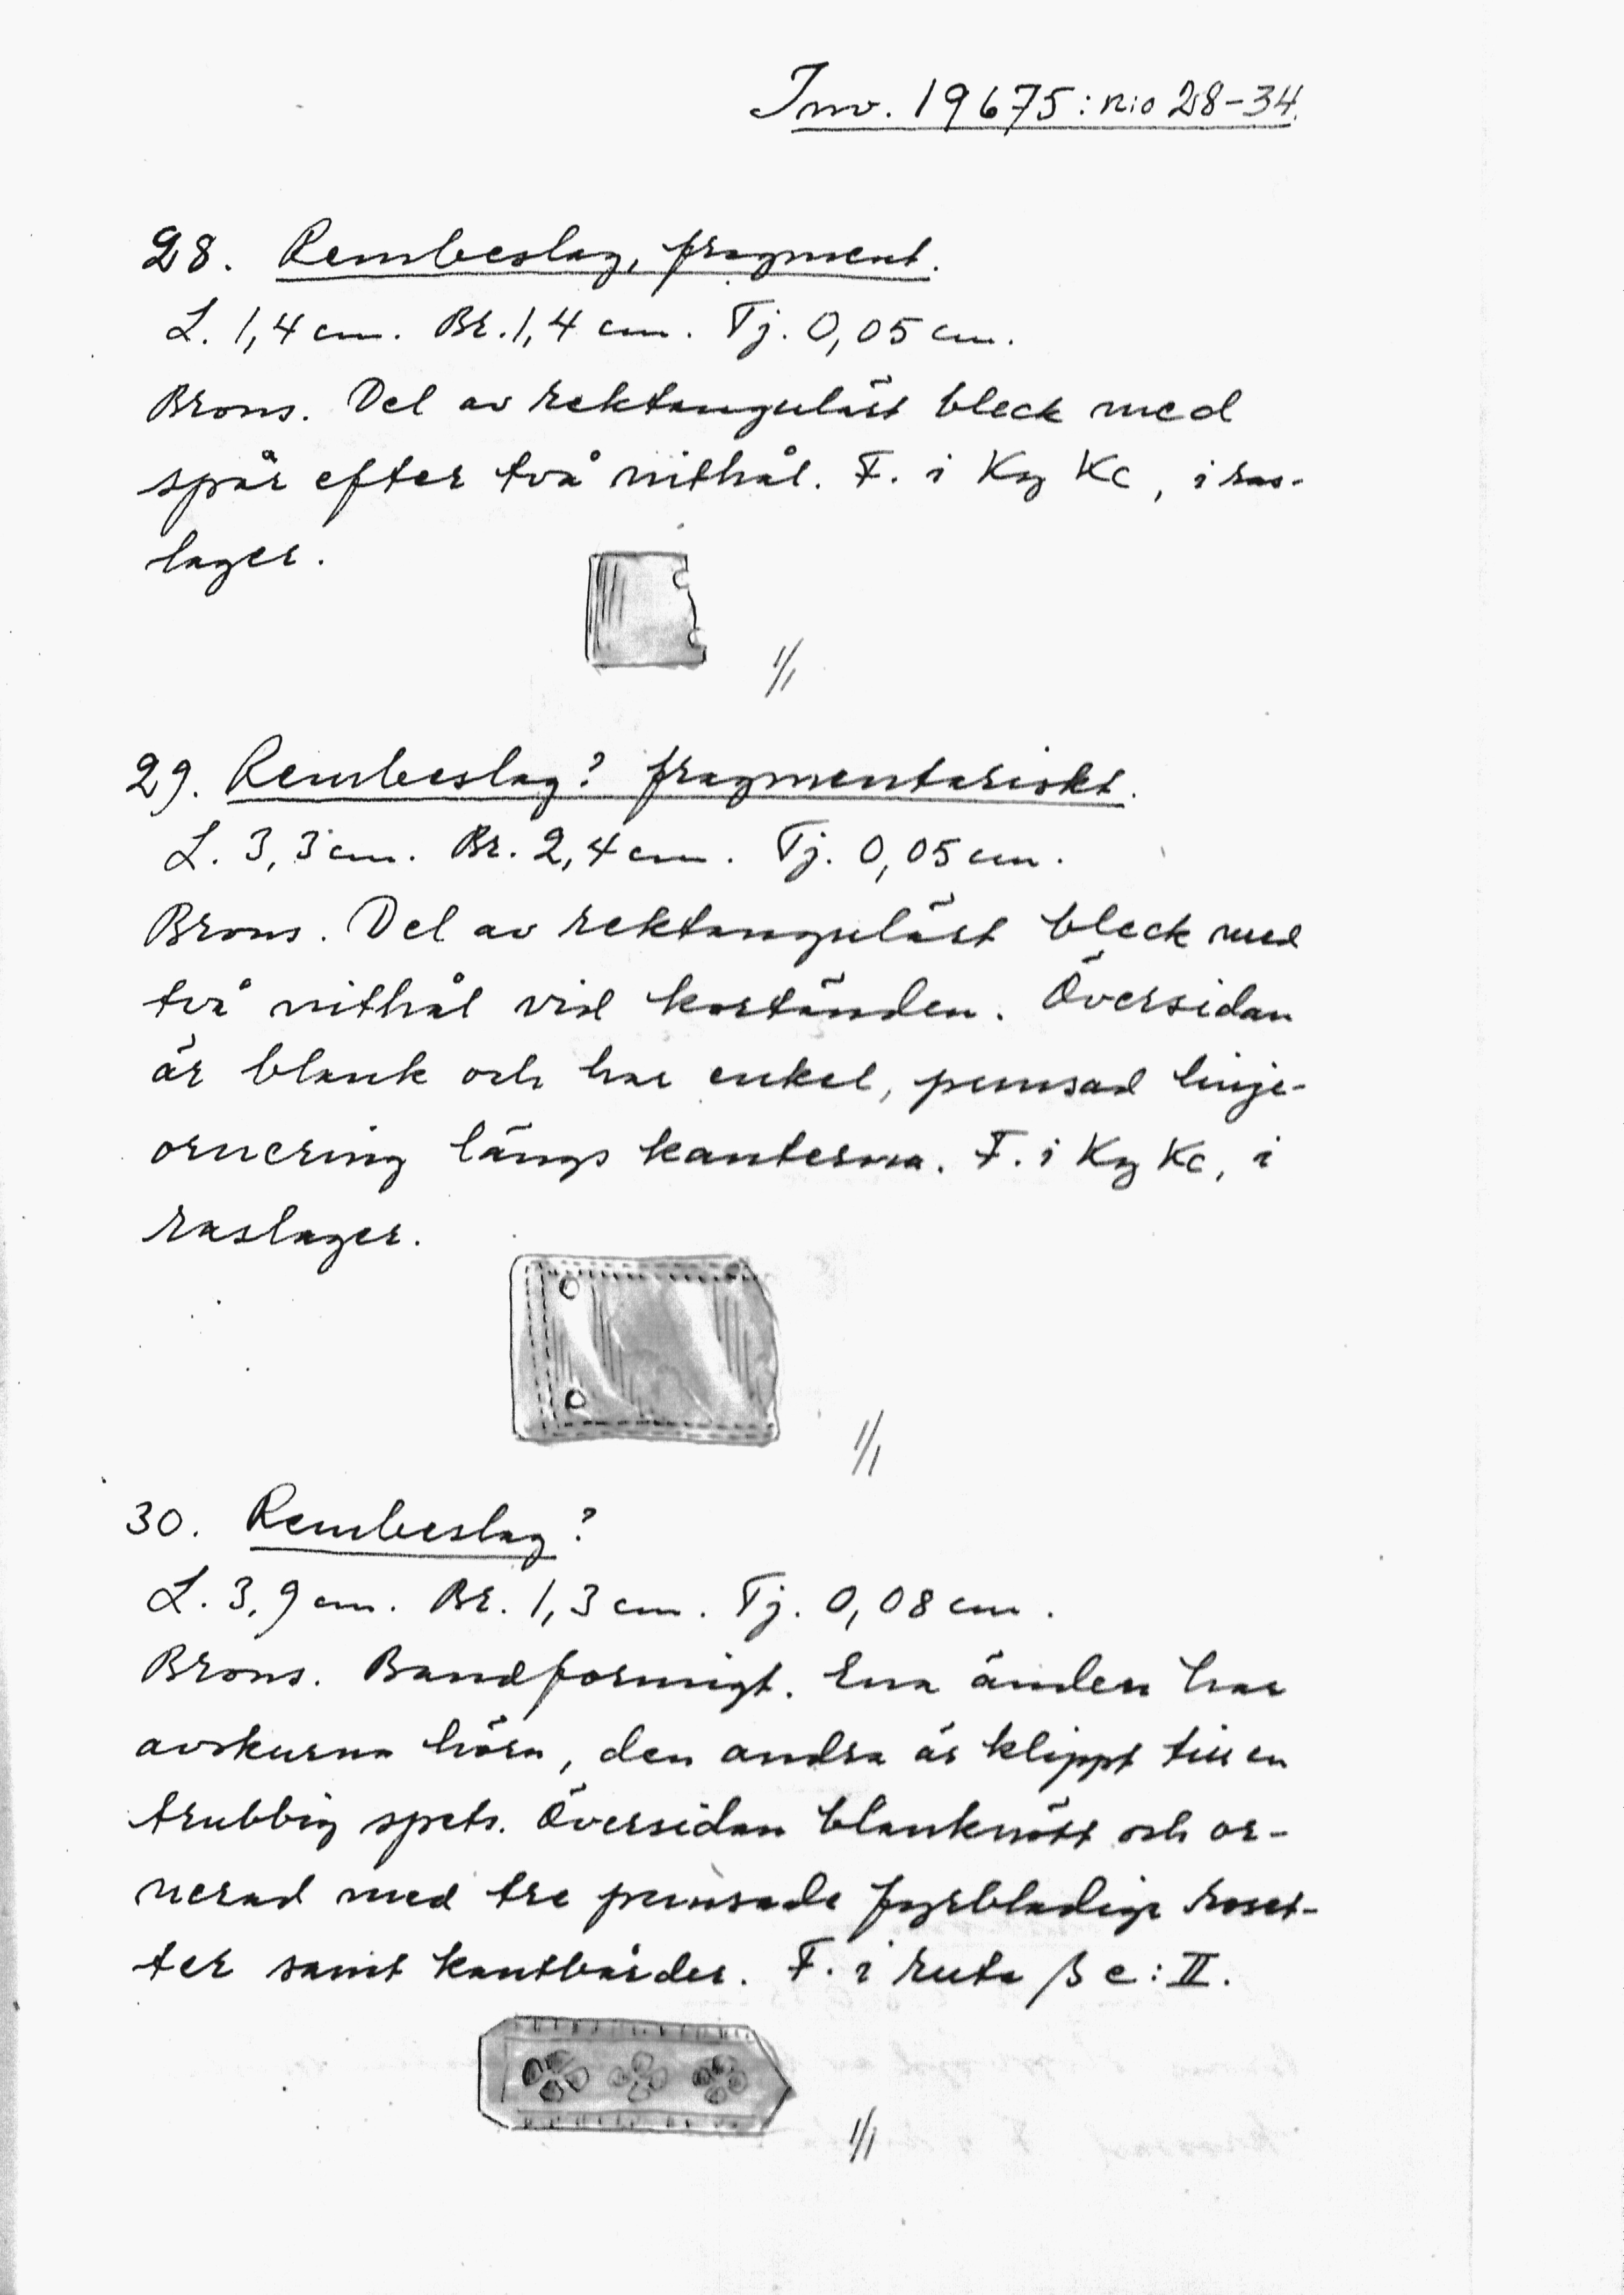 Inv. 19675: n:o 28-34.
28. Rembeslag, fragment.
L. 1,4 cm. Br. 1,4 cm. Tj. 0,05 cm.
Brons. Del av rektangulärt bleck med
spår efter två nithål. F. i Kg Kc, i ras-
lager.
1/1
29. Rembeslag? fragmentariskt.
L. 3,3 cm. Br. 2,4 cm. Tj. 0,05 cm.
Brons. Del av rektangulärt bleck med
två nithål vid kortänden. Översidan
är blank och har enkel, punsad linje-
ornering längs kanterna. F. i Kg Kc, i
raslager.
1/1
30. Rembeslag?
L. 3,9 cm. Br. 1,3 cm. Tj. 0,08 cm.
Brons. Bandformigt. Ena änden har
avskurna hörn, den andra är klippt till en
trubbig spets. Översidan blanknött och or-
nerad med tre punsade fyrbladiga roset-
ter samt kantbårder. F. i ruta β c: II.
1/1